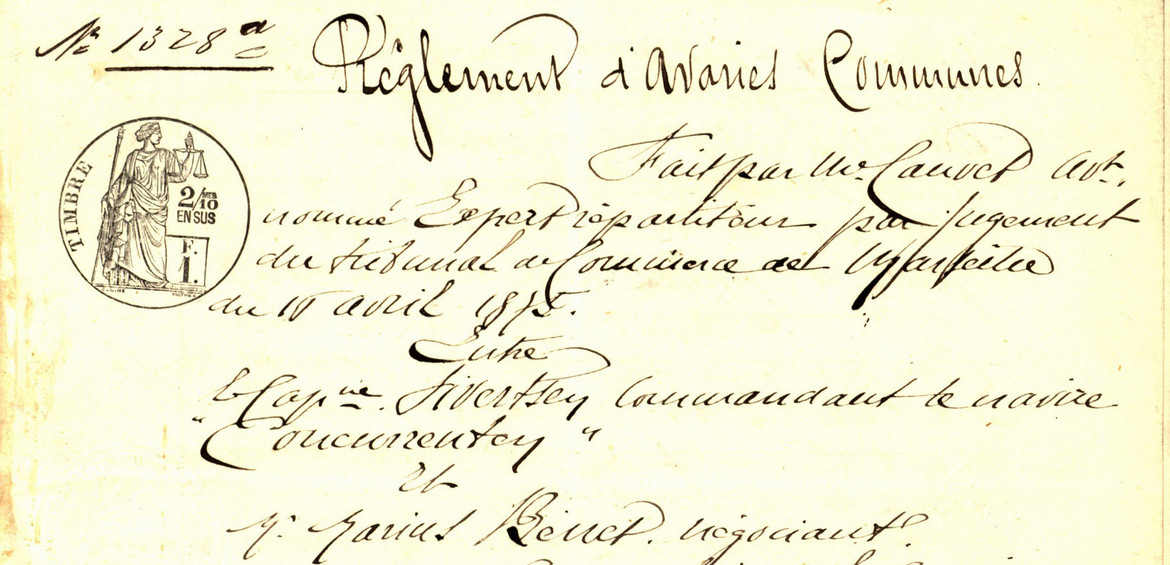 No 1328 a
Règlement d'Avaries Communes.
TIMBRE
2/10 EN SUS
F. 1.
Fait par Me Cauvet avt.
nommé Expert répartiteur par jugement
du tribunal de Commerce de Marseille
du avril 1875.
Entre
le Capne. Sivertsen Commandant le navire
"Concurrenten"
Et
Mr Marius Benet. négociant